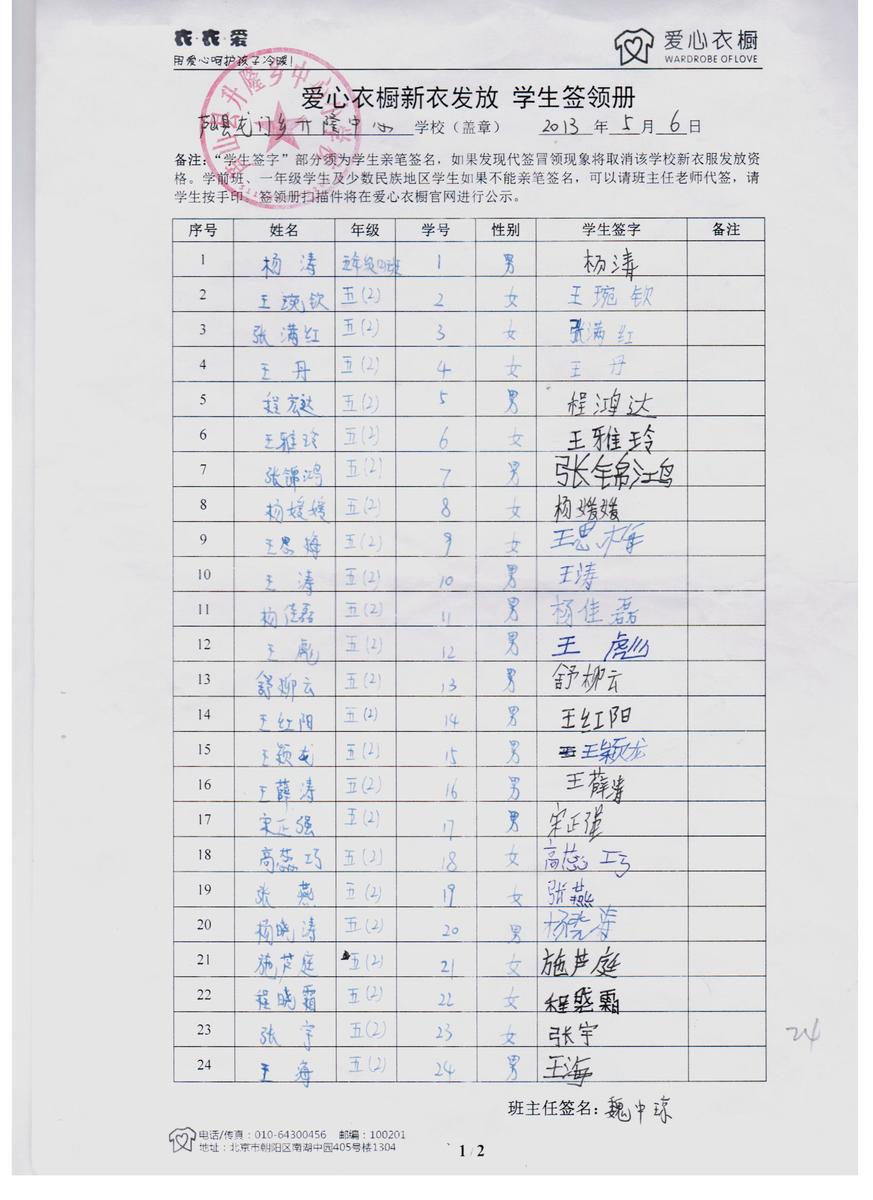 衣·衣·爱
用爱心呵护孩子冷暖!
爱心衣橱
WARDROBE OF LOVE
爱心衣橱新衣发放 学生签领册
芦山县龙门乡升隆中心 学校（盖章） 2013 年 5 月 6 日
备注：“学生签字”部分须为学生亲笔签名，如果发现代签冒领现象将取消该学校新衣服发放资
格。学前班、一年级学生及少数民族地区学生如果不能亲笔签名，可以请班主任老师代签，请
学生按手印。签领册扫描件将在爱心衣橱官网进行公示。
序号 姓名 年级 学号 性别 学生签字 备注
1 杨涛 五年级(2)班 1 男 杨涛
2 王琬钦 五(2) 2 女 王琬钦
3 张满红 五(2) 3 女 张满红
4 王丹 五(2) 4 女 王丹
5 程宏达 五(2) 5 男 程鸿达
6 王雅玲 五(2) 6 女 王雅玲
7 张锦鸿 五(2) 7 男 张锦鸿
8 杨媛媛 五(2) 8 女 杨媛媛
9 王思梅 五(2) 9 女 王思梅
10 王涛 五(2) 10 男 王涛
11 杨佳磊 五(2) 11 男 杨佳磊
12 王彪 五(2) 12 男 王彪
13 舒柳云 五(2) 13 男 舒柳云
14 王红阳 五(2) 14 男 王红阳
15 王颖龙 五(2) 15 男 王颖龙
16 王薛涛 五(2) 16 男 王薛涛
17 宋正强 五(2) 17 男 宋正强
18 高蕊巧 五(2) 18 女 高蕊巧
19 张燕 五(2) 19 女 张燕
20 杨晓涛 五(2) 20 男 杨晓涛
21 施芦庭 五(2) 21 女 施芦庭
22 程晓霜 五(2) 22 女 程晓霜
23 张宇 五(2) 23 女 张宇
24 王海 五(2) 24 男 王海
24
班主任签名：魏中琼
电话/传真：010-64300456 邮编：100201
地址：北京市朝阳区南湖中园405号楼1304
1 / 2